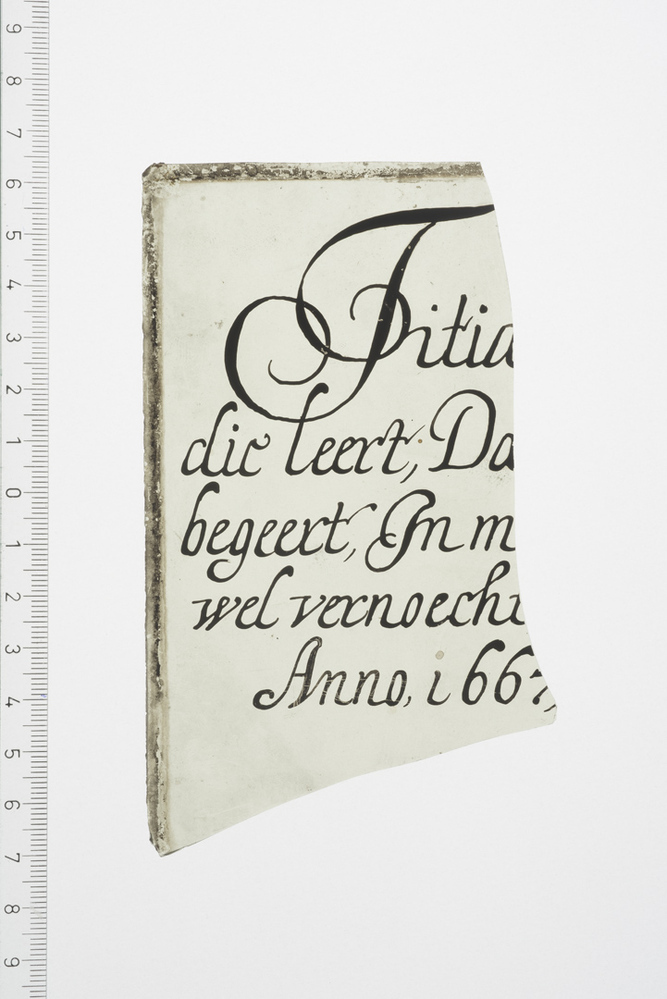 9
8
7
6
5
4
3
2
1
0
1
2
3
4
5
6
7
8
9
Titia
die leert, Da
begeert, In m
wel vernoecht
Anno, i 667,